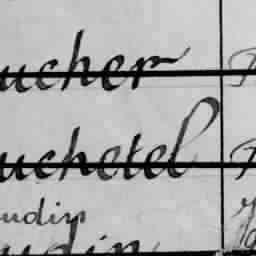 ucher
uchetel
udin
udin